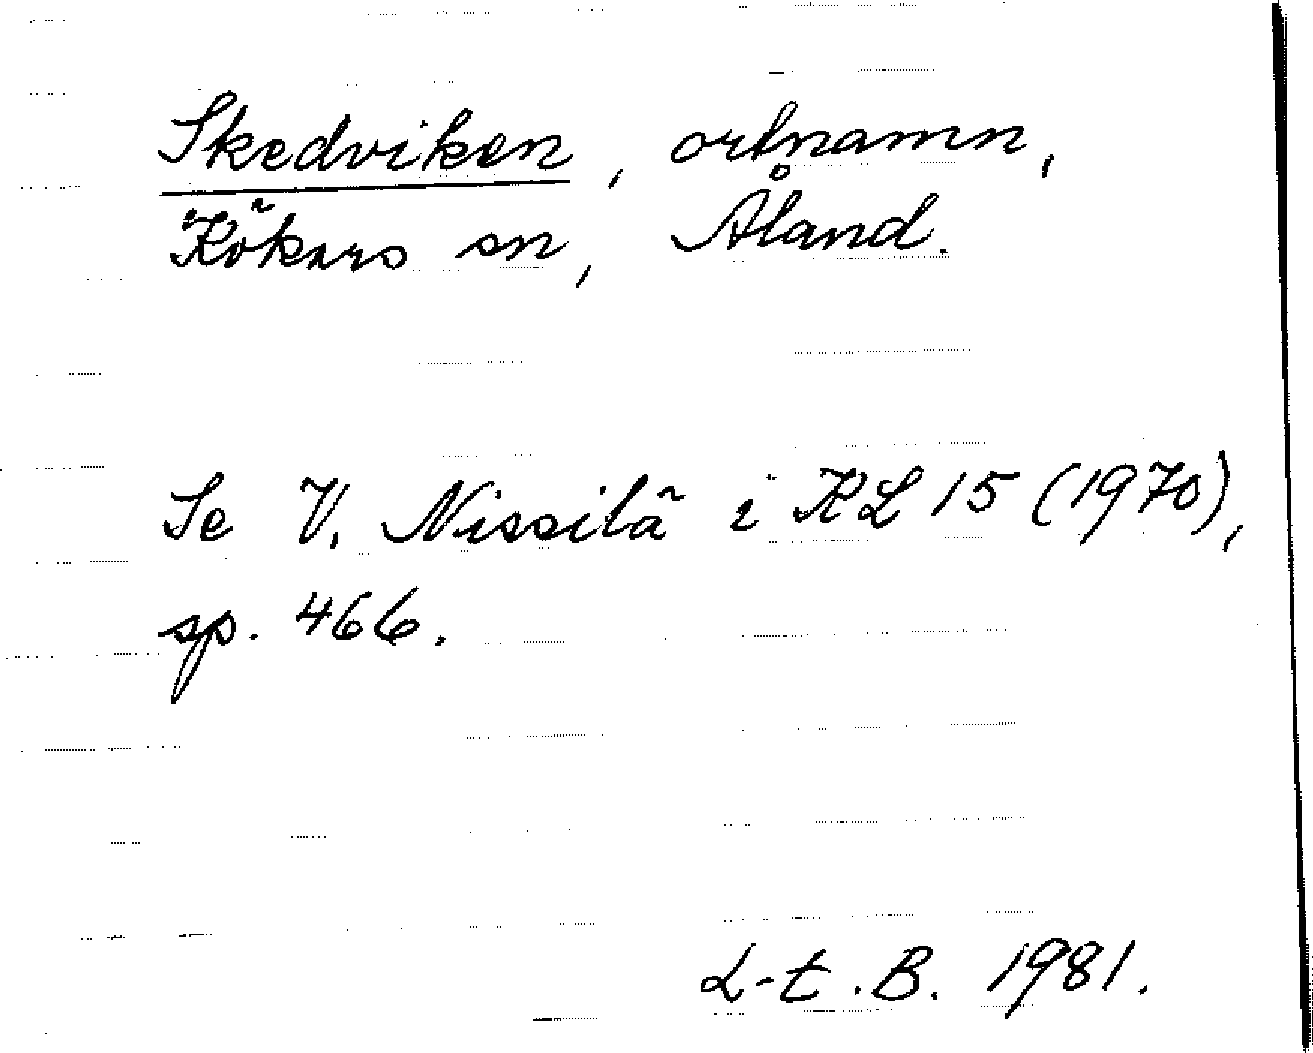 Skedviken, ortnamn,
Kökars sn, Åland.
Se V. Nissilä i KL 15 (1970),
sp. 466.
L-t.B. 1981.